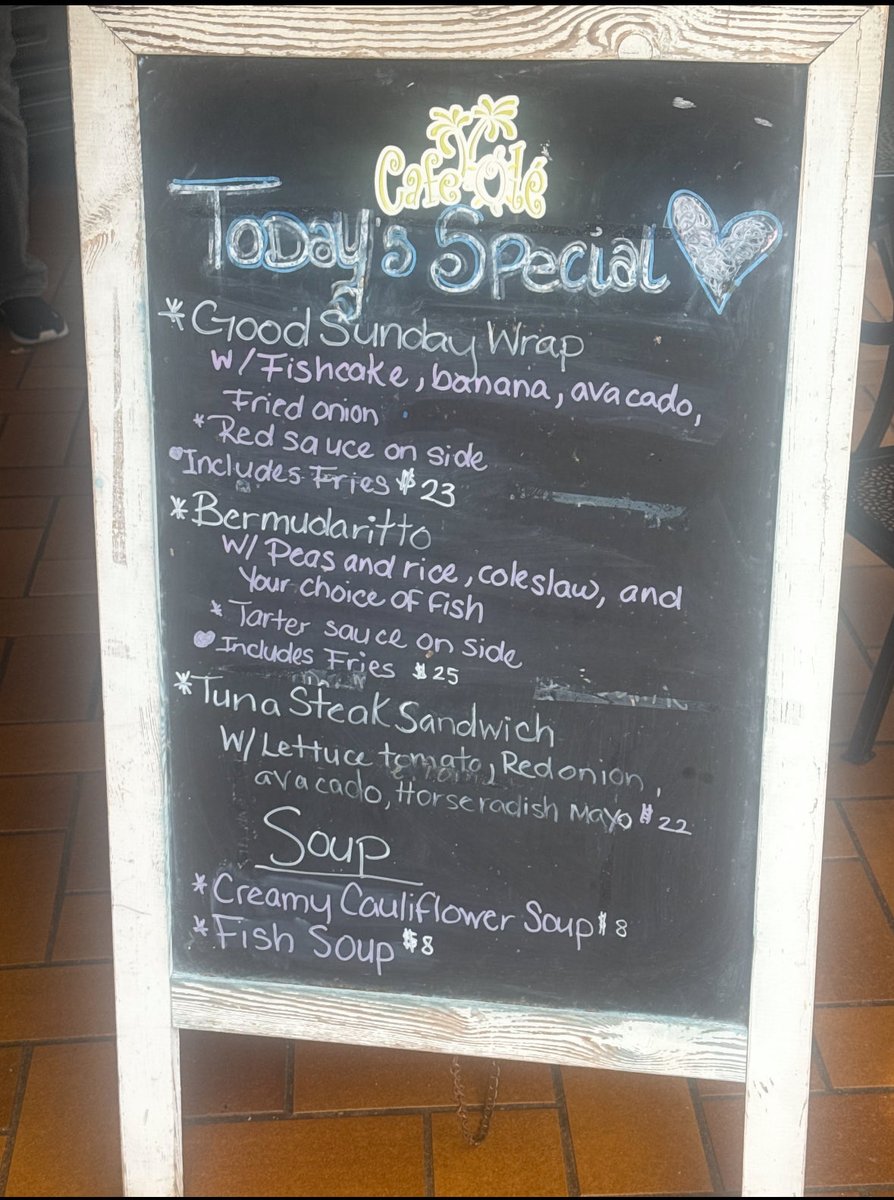 Cafe Olé
Today's Special
*Good Sunday Wrap
w/Fishcake, banana, avacado,
Fried onion
*Red sauce on side
Includes Fries $23
*Bermudaritto
w/ Peas and rice, coleslaw, and
Your choice of fish
* Tarter sauce on side
Includes Fries $25
*Tuna Steak Sandwich
w/Lettuce tomato, Red onion,
avacado, Horseradish Mayo $22
Soup
*Creamy Cauliflower Soup $8
*Fish Soup $8